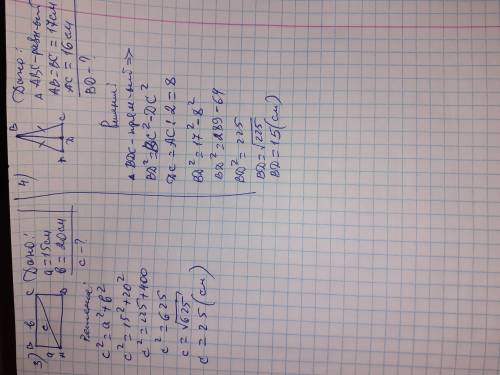 3)
B
b
C
a
c
A
D
Дано:
a = 15 см
b = 20 см
c - ?
Решение:
c² = a² + b²
c² = 15² + 20²
c² = 225 + 400
c² = 625
c = √625
c = 25 (см)
4)
B
A
D
C
Дано:
△ ABC - равн-ный
AB = BC = 17 см
AC = 16 см
BD - ?
Решение:
△ BDC - прям-ый =>
BD² = BC² - DC²
DC = AC : 2 = 8
BD² = 17² - 8²
BD² = 289 - 64
BD² = 225
BD = √225
BD = 15 (см)